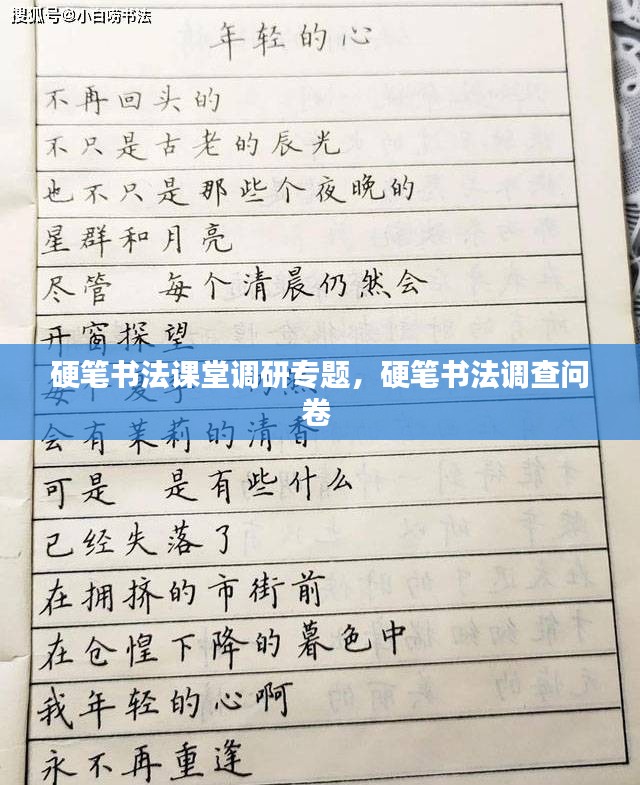 搜狐号@小白唠书法
年轻的心
不再回头的
不只是古老的辰光
也不只是那些个夜晚的
星群和月亮
尽管 每个清晨仍然会
开窗探望
硬笔书法课堂调研专题，硬笔书法调查问
卷
每个夏季 仍然
会有茉莉的清香
可是 是有些什么
已经失落了
在拥挤的市街前
在仓惶下降的暮色中
我年轻的心啊
永不再重逢